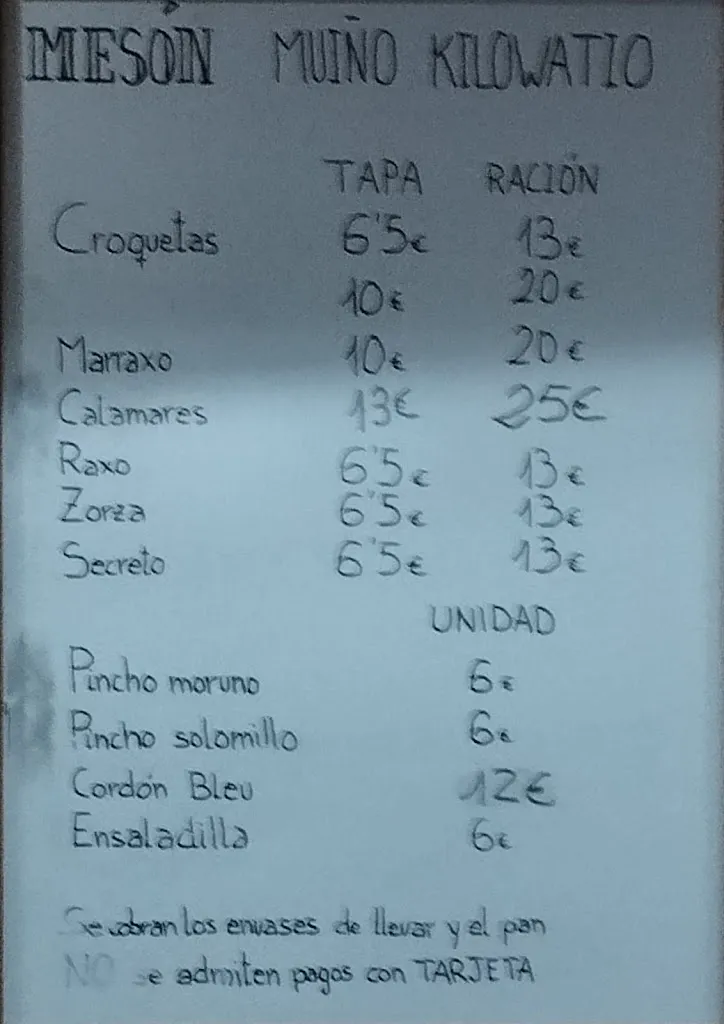 MESÓN MUIÑO KILOWATIO
TAPA RACIÓN
Croquetas 6'5€ 13€
10€ 20€
Marraxo 10€ 20€
Calamares 13€ 25€
Raxo 6'5€ 13€
Zorza 6'5€ 13€
Secreto 6'5€ 13€
UNIDAD
Pincho moruno 6€
Pincho solomillo 6€
Cordón Bleu 12€
Ensaladilla 6€
Se cobran los envases de llevar y el pan
NO se admiten pagos con TARJETA